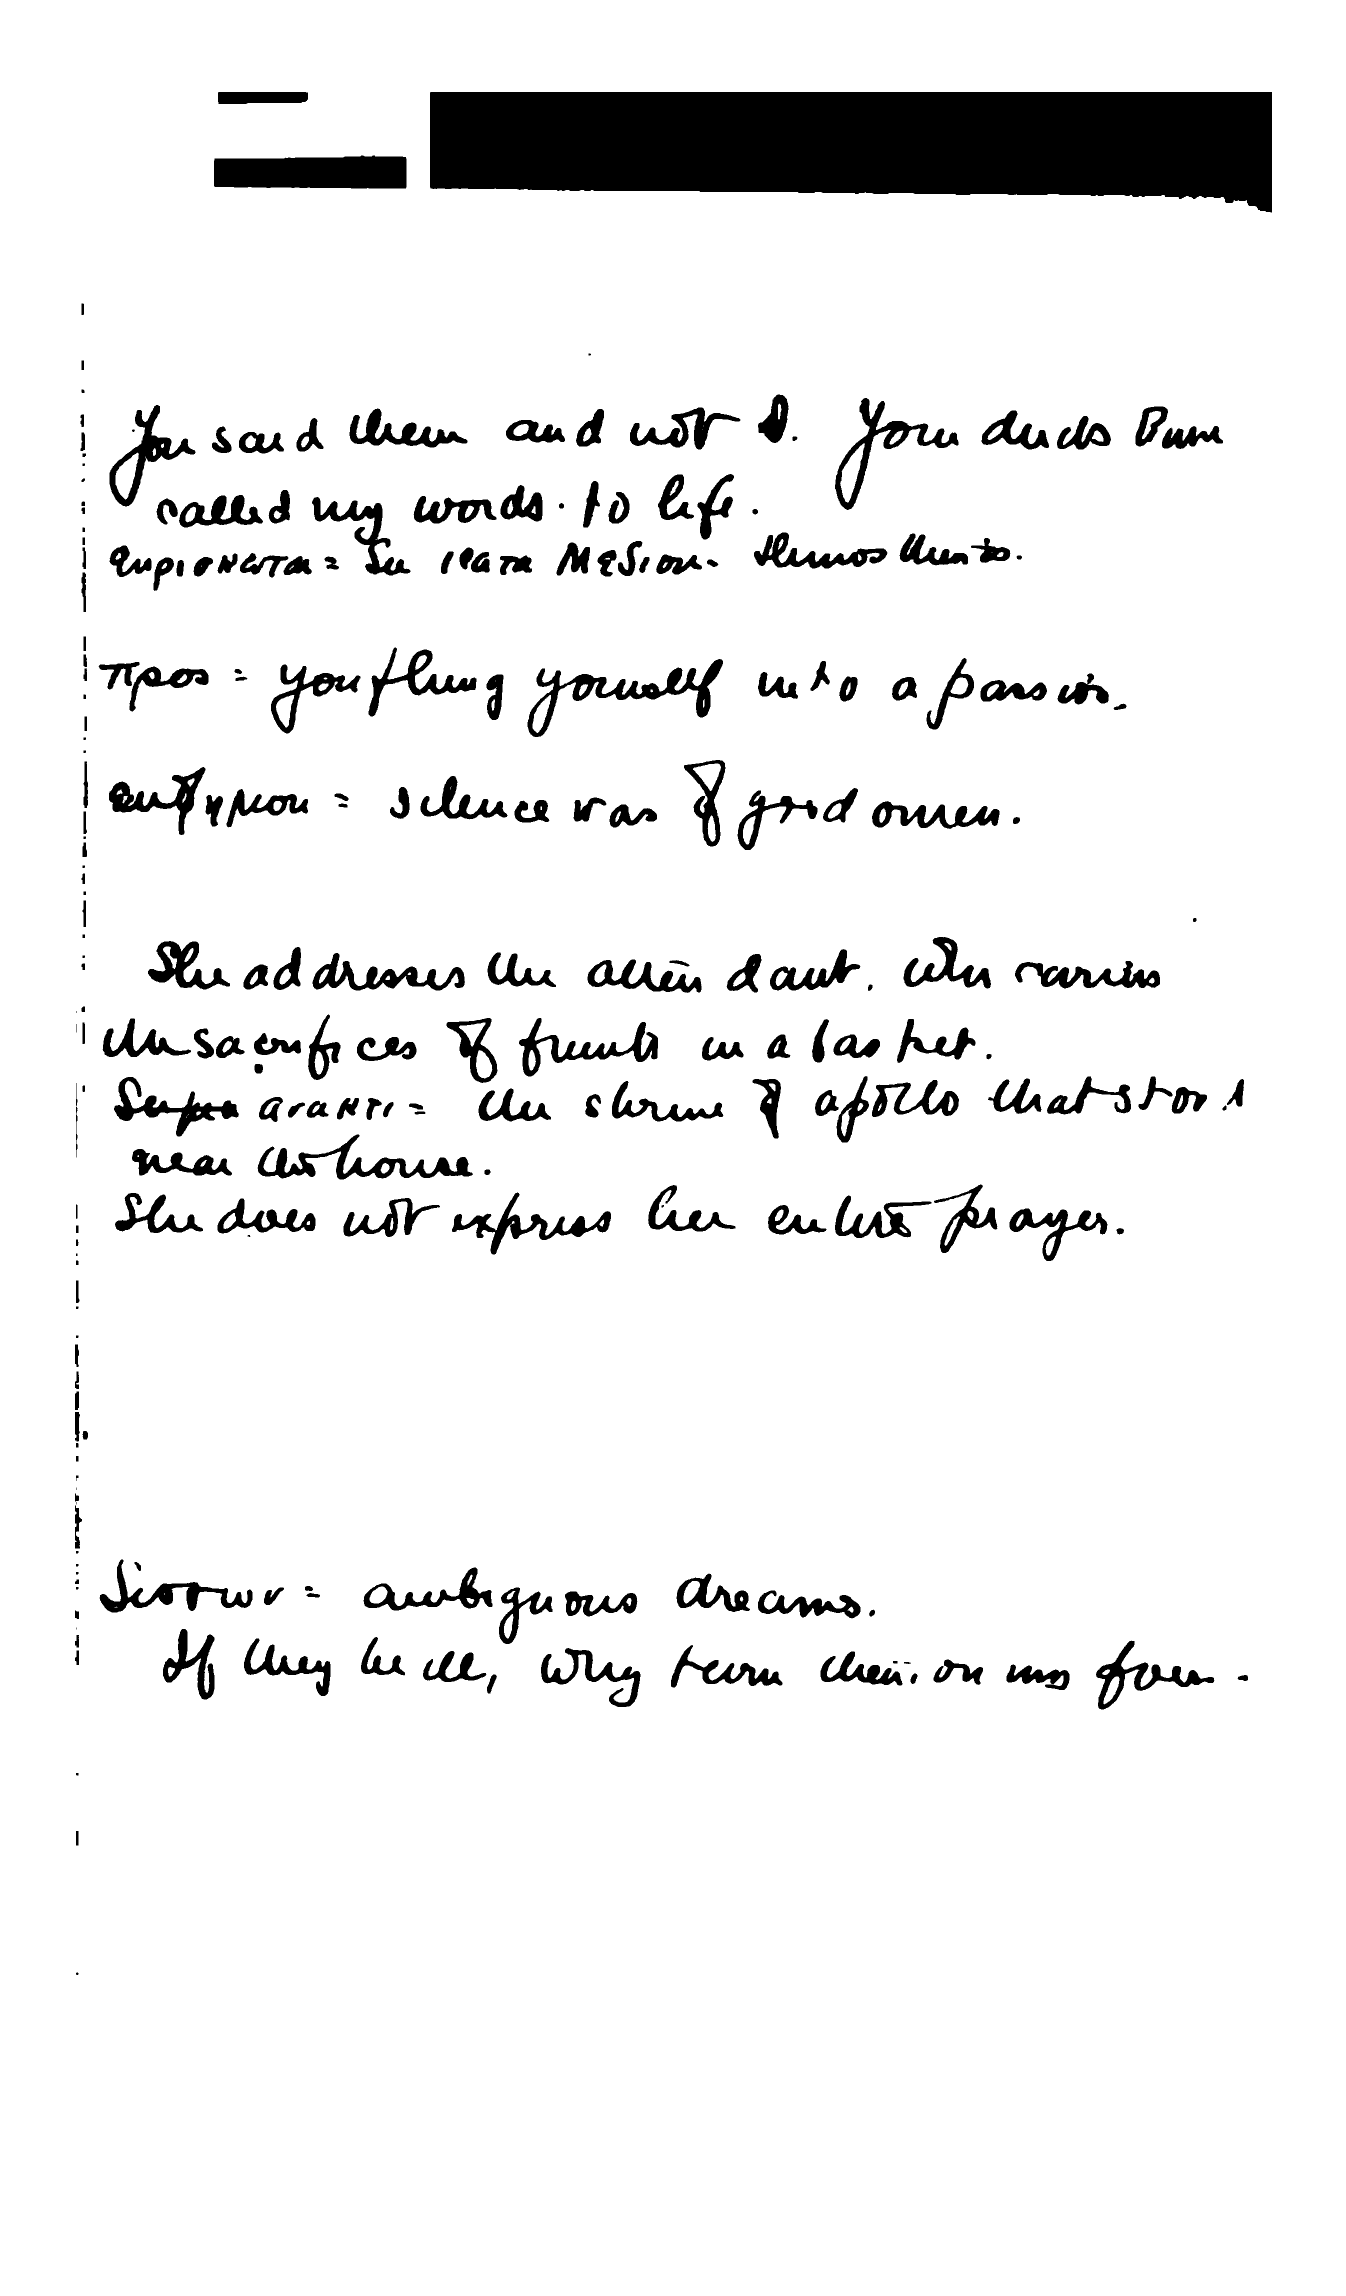 You said them and not I. Your deeds
called my words to life.
προς = you flung yourself into a passion.
= silence was of good omen.
She addresses the attendant. who carries
the sacrifices of fruits in a basket.
the shrine of apollo that stood
near the house.
She does not express her entire prayer.
δισσων = ambiguous dreams.
If they be ill, why turn them on my foes.